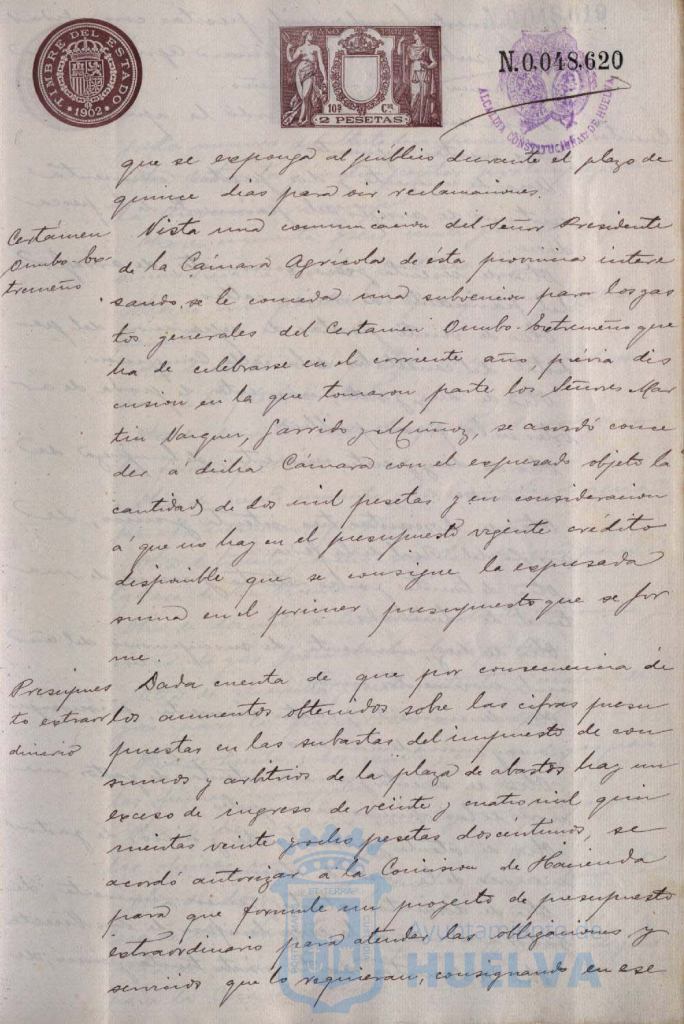 TIMBRE DEL ESTADO
1902
10ª Cª
2 PESETAS
N.0,048,620
ALCALDIA CONSTITUCIONAL DE HUELVA
que se exponga al publico durante el plazo de
quince dias para oir reclamaciones.
Certámen
Onubo-Ex-
tremeño
Vista una comunicacion del Señor Presidente
de la Cámara Agrícola de ésta provincia intere
sando se le conceda una subvencion para los gas
tos generales del Certamen Onubo-Extremeño que
ha de celebrarse en el corriente año, prévia dis
cusion en la que tomaron parte los Señores Mar
tin Vazquez, Garrido y Muñoz, se acordó conce
der á dicha Cámara con el espresado objeto la
cantidad de dos mil pesetas y en consideracion
á que no hay en el presupuesto vigente crédito
disponible que se consigne la espresada
suma en el primer presupuesto que se for
me.
Presupues
to extraor
dinario
Dada cuenta de que por consecuencia de
los aumentos obtenidos sobre las cifras presu
puestas en las subastas del impuesto de con
sumos y arbitrios de la plaza de abastos hay un
exceso de ingreso de veinte y cuatro mil quin
nientas veinte y ocho pesetas dos céntimos, se
acordó autorizar á la Comision de Hacienda
para que formule un proyecto de presupuesto
extraordinario para atender las obligaciones y
servicios que lo requieran, consignando en ese
Ayuntamiento de
HUELVA